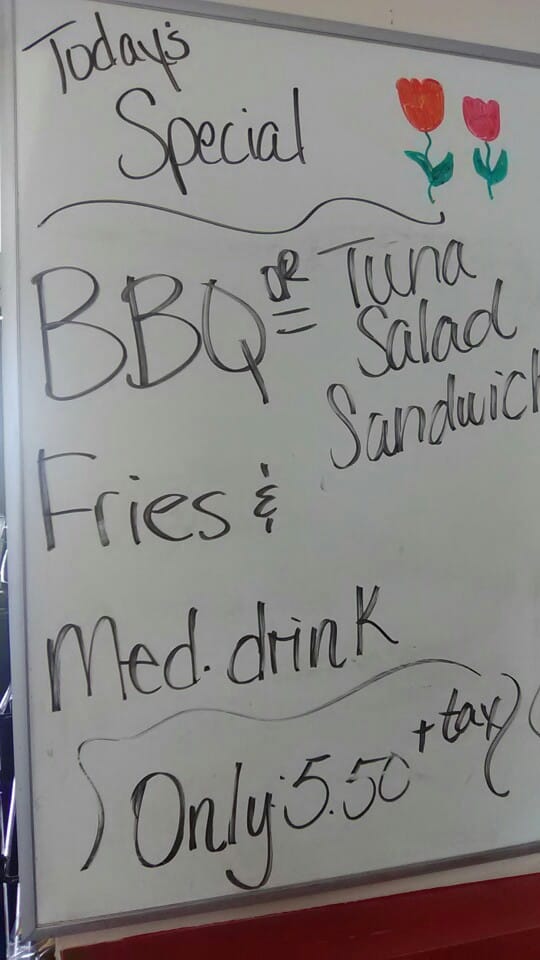 Today's
Special
BBQ OR Tuna
Salad
Sandwich
Fries &
Med. drink
Only 5.50 + tax